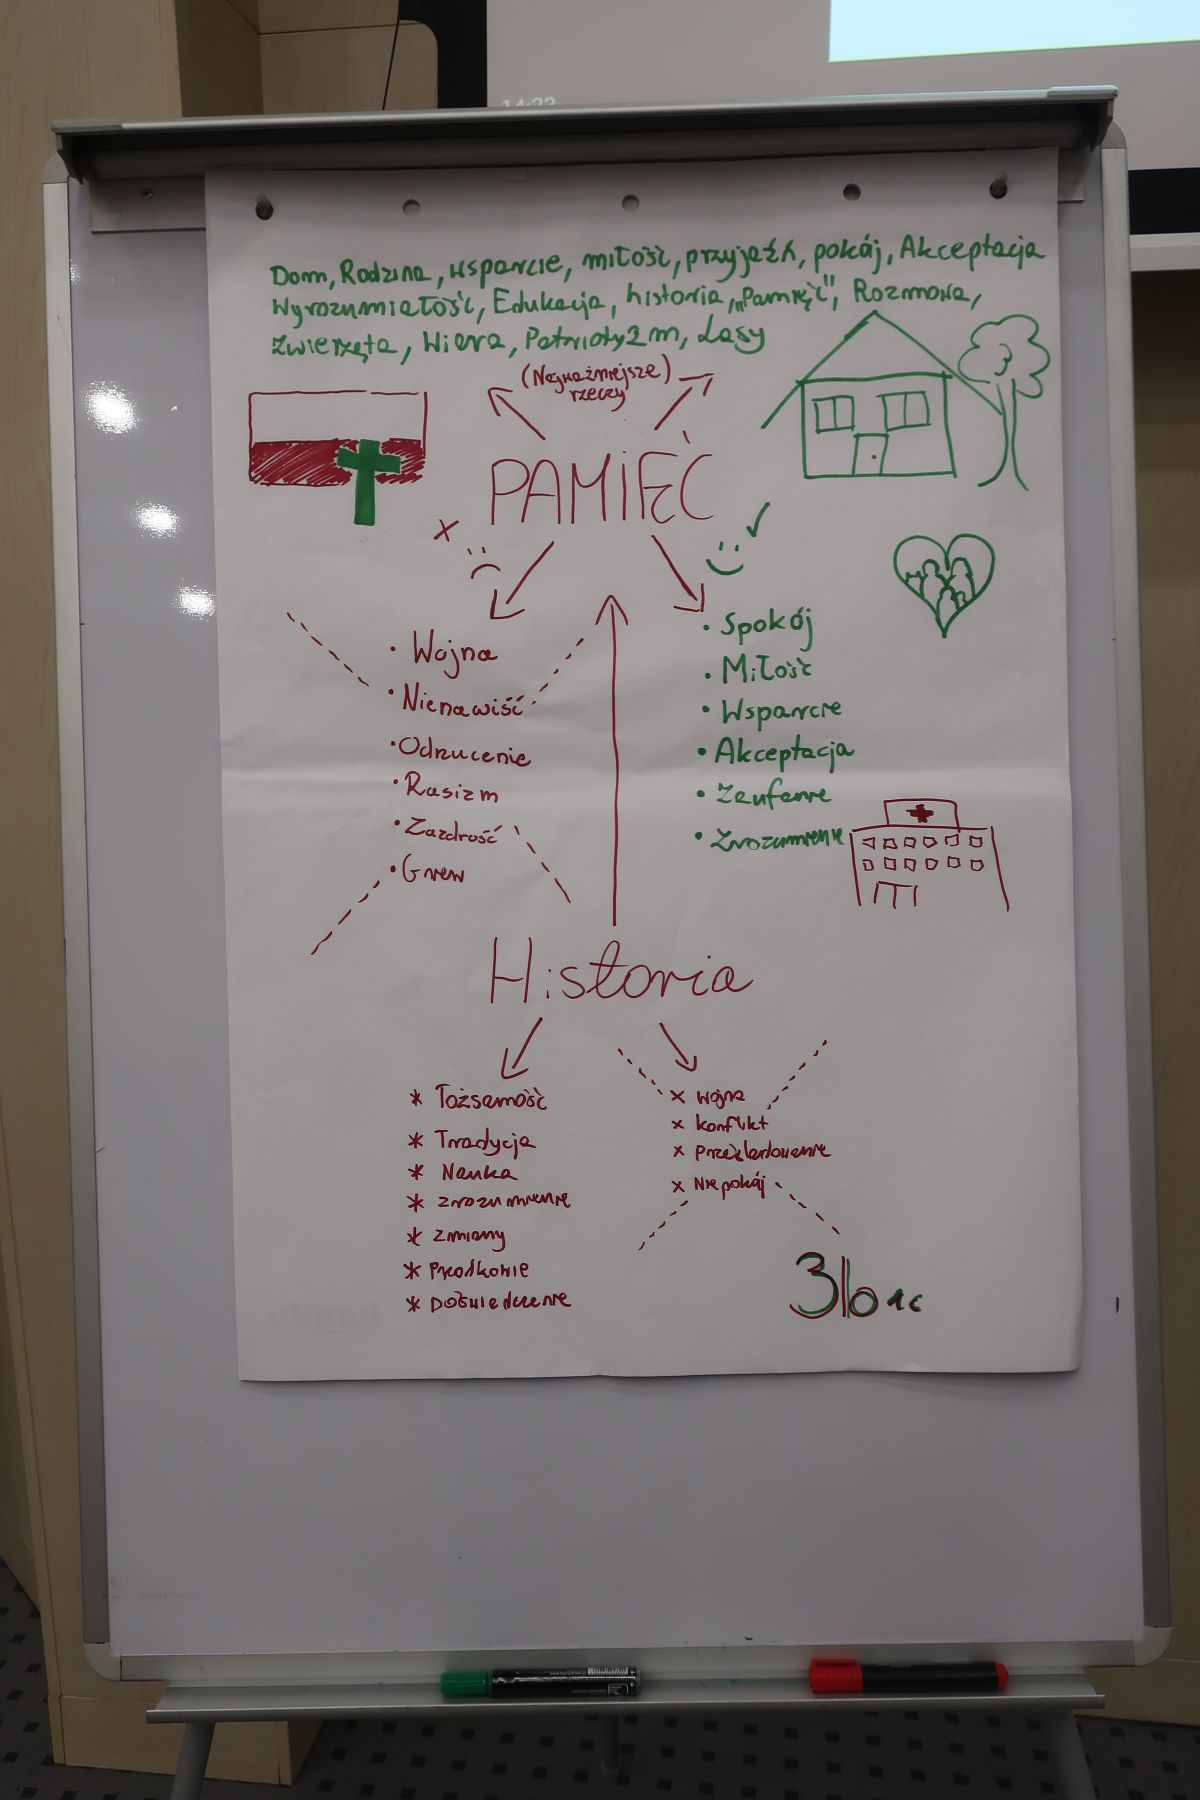 14:23
Dom, Rodzina, wsparcie, miłość, przyjaźń, pokój, Akceptacja
Wyrozumiałość, Edukacja, historia, „Pamięć", Rozmowa,
Zwierzęta, Wiara, Patriotyzm, Lasy
(Najważniejsze)
rzeczy
PAMIĘĆ
• Wojna
• Nienawiść
• Odrzucenie
• Rasizm
• Zazdrość
• Gniew
• Spokój
• Miłość
• Wsparcie
• Akceptacja
• Zaufanie
• Zrozumienie
Historia
* Tożsamość
* Tradycja
* Nauka
* zrozumienie
* zmiany
* Przodkowie
* Doświadczenie
x wojna
x konflikt
x prześladowanie
x Niepokój